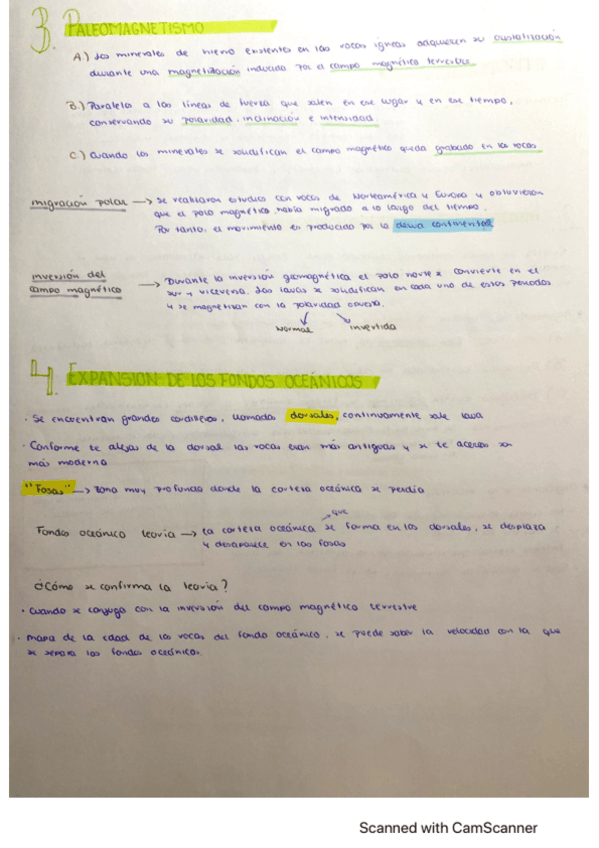 3. PALEOMAGNETISMO
A) Los minerales de hierro existentes en las rocas ígneas adquieren su cristalización
durante una magnetización inducida por el campo magnético terrestre.
B.) Paralelos a las líneas de fuerza que salen en ese lugar y en ese tiempo,
conservando su polaridad, inclinación e intensidad
C) Cuando los minerales se solidifican el campo magnético queda grabado en las rocas
migración polar → Se realizaron estudios con rocas de Norteamérica y Europa y obtuvieron
que el polo magnético había migrado a lo largo del tiempo.
Por tanto, el movimiento es producido por la deriva continental
inversión del
campo magnético → Durante la inversión geomagnética el polo norte se convierte en el
sur y viceversa. Las lavas se solidifican en cada uno de estos periodos
y se magnetizan con la polaridad opuesta.
normal invertida
4. EXPANSION DE LOS FONDOS OCEÁNICOS
· Se encuentran grandes cordilleras, llamadas dorsales, continuamente sale lava
· Conforme te alejas de la dorsal las rocas eran más antiguas y si te acercas son
más moderna
"Fosas" → Zona muy profunda donde la corteza oceánica se perdía
que
Fondos oceánico teoría → La corteza oceánica se forma en las dorsales, se desplaza
y desaparece en las fosas
¿Cómo se confirma la teoría?
· Cuando se conjuga con la inversión del campo magnético terrestre
· mapa de la edad de las rocas del fondo oceánico, se puede saber la velocidad con la que
se separa los fondos oceánicos.
Scanned with CamScanner